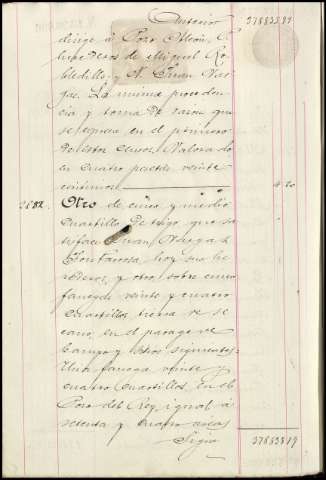 Anterior 37883389
dirige á Pozo Alcón, 
herederos de Miguel Ro
bledillo, y D. Juan Var
gas. La misma proceden
cia y toma de razon que
se espresa en el primero
de estos censos. Valorado
en cuatro pesetas veinte
centimos. 4-20
Otro de cinco y medio
cuartillos de trigo que sa
tisface Juan Vargas
hoy sus he
rederos, y otro, sobre cinco
fanegas veinte y cuatro
cuartillos tierra de se
cano, en el parage de
y sitios siguientes:
Una fanega veinte y
cuatro cuartillos, en el
Pozo del Rey, igual á
setenta y cuatro areas
Sigue 37883389